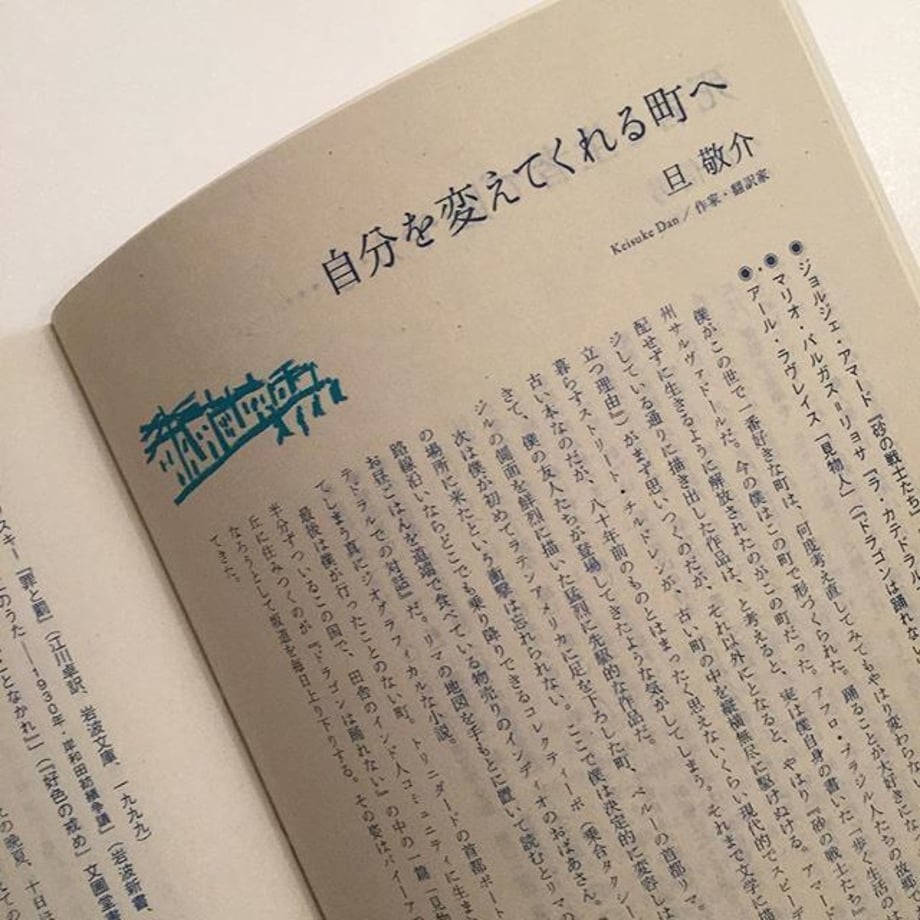 自分を変えてくれる町へ
旦 敬介
Keisuke Dan／作家・翻訳家
◉ジョルジェ・アマード『砂の戦士たち
◉マリオ・バルガス＝リョサ『ラ・カテドラル
◉アール・ラヴレイス「見物人」（『ドラゴンは踊れない
僕がこの世で一番好きな町は、何度考え直してみてもやはり変わらない
州サルヴァドールだ。今の僕はこの町で形づくられた。踊ることが大好きにな
配せずに生きるように解放されたのがこの町だった。アフロ・ブラジル人たちの故郷
ジしている通りに描き出した作品は、と考えると、実は僕自身の書いた「歩く生活の
立つ理由」）がまず思いつくのだが、それ以外にとなると、やはり『砂の戦士たち
暮らすストリート・チルドレンが、古い町の中を縦横無尽に駆けぬける。アマード
古い本なのだが、八十年前のものとはまったく思えないくらい現代的でスピー
きて、僕の友人たちが登場してきたような気がしてしまう。それまで文学に
ジルの側面を鮮烈に描いた猛烈に先駆的な作品だ。
次は僕が初めてラテンアメリカに足を下ろした町、ペルーの首都リマ。
の場所に来たという衝撃は忘れられない。ここで僕は決定的に変容し
路線沿いならどこでも乗り降りできるコレクティーボ（乗合タクシー
お昼ごはんを道端で食べている物売りのインディオのおばあさん。
テドラルでの対話』だ。リマの地図を手もとに置いて読むとリマの
てしまう真にジオグラフィカルな小説。
最後は僕が行ったことのない町。トリニダードの首都ポート
半分ずついるこの国で、田舎のインド人コミュニティに生ま
丘に住みつくのが『ドラゴンは踊れない』の中の一篇「見物
なろうとして坂道を毎日上り下りする。その姿はバイーア
てきた。
スキー『罪と罰』（江川卓訳、岩波文庫、一九九九）
このうた――1930年・岸和田紡績争議』（岩波新書、
ことなかれ』」（『好色の戒め』文圃堂書
の晩夏、十日ほ